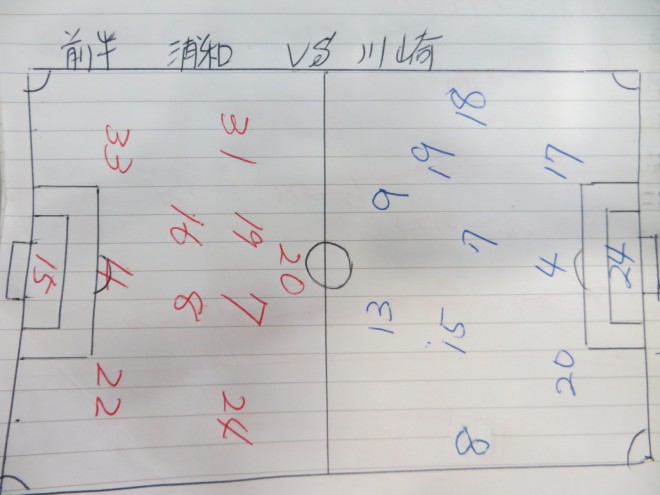 前半 浦和 VS 川崎
18
31
33 19 17
9
16 19 7
15 4 20 4 24
8 7 13 15
20
22 24
8